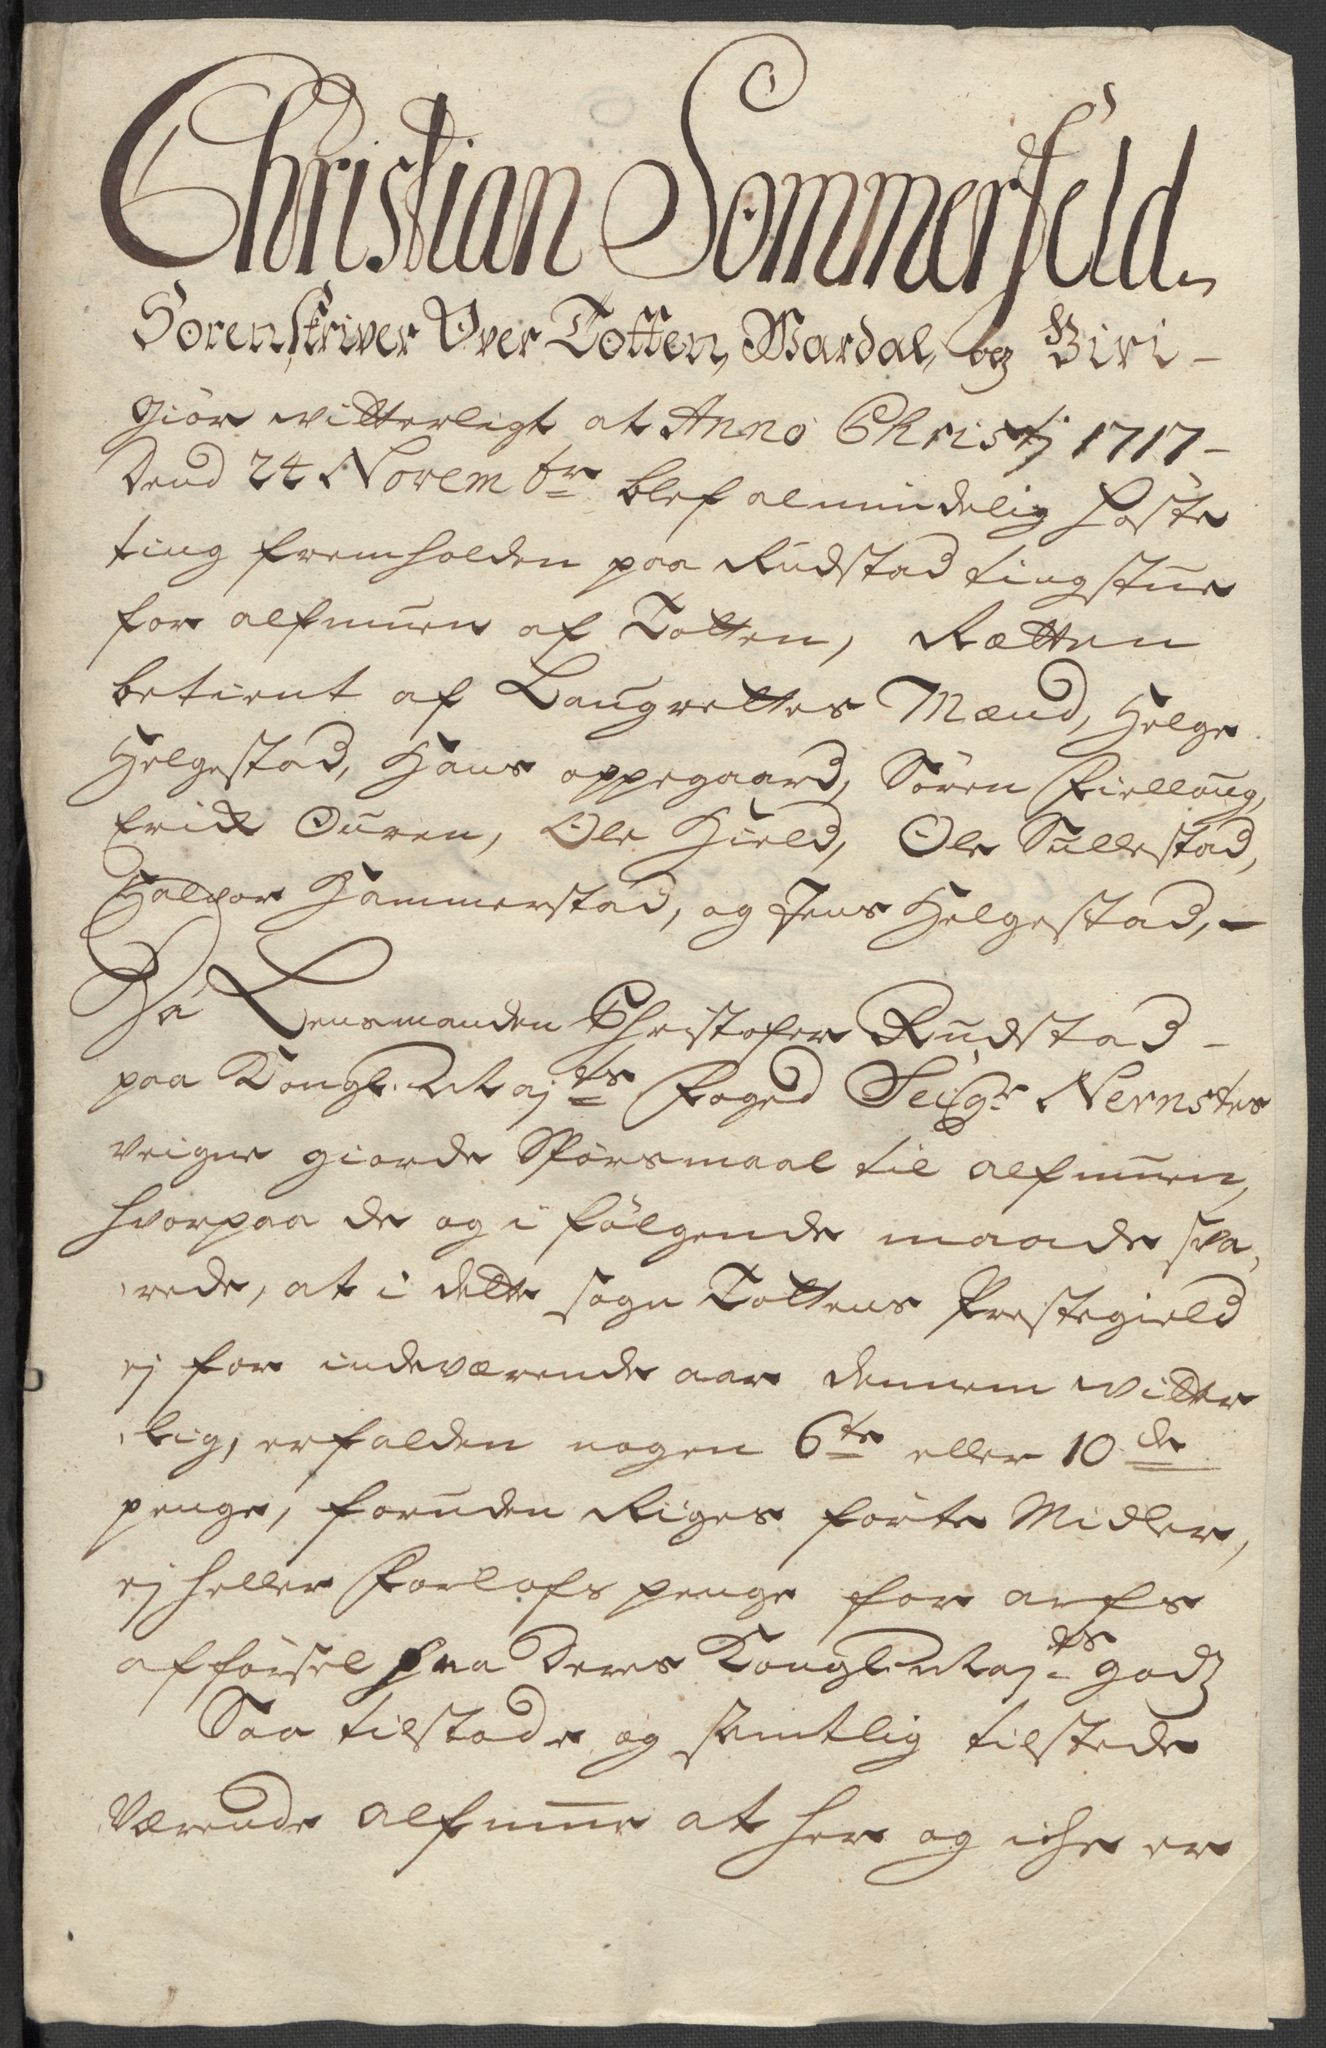 Christian Sommerfeld
Sorenskriver Over Totten, Wardal, og Biri -
Giör witterligt at Anno Christj 1717 -
Dend 24 Novembr blef almindelig Höste
ting fremholden paa Rudstad tingstue
for almuen af Totten, Rætten
betient af Laugrettes Mænd, Helge
Helgestad, Hans oppegaard, Sören Fiellaug,
Erich Ouren, Ole Hield, Ole Sullestad,
Halvor Hammerstad, og Jens Helgestad, -
Da Lensmanden Christofer Rudstad -
paa Kongl. Majts Foged Seigr Nernstes
veigne giorde Spörsmaal til almuen,
hvorpaa de og i fölgende maade sva,
rede, at i dette sogn Tottens Præstegield
ej for indeværende aar dennem witter
lig, erfalden nogen 6te eller 10de
penge, for uden Riges förte Midler,
ej heller Forlofs penge for arfs
afförsel fra Deres Kongl. Majts godz
Saa tilstode og semtlig tilstede
Værende almue at her og iche er